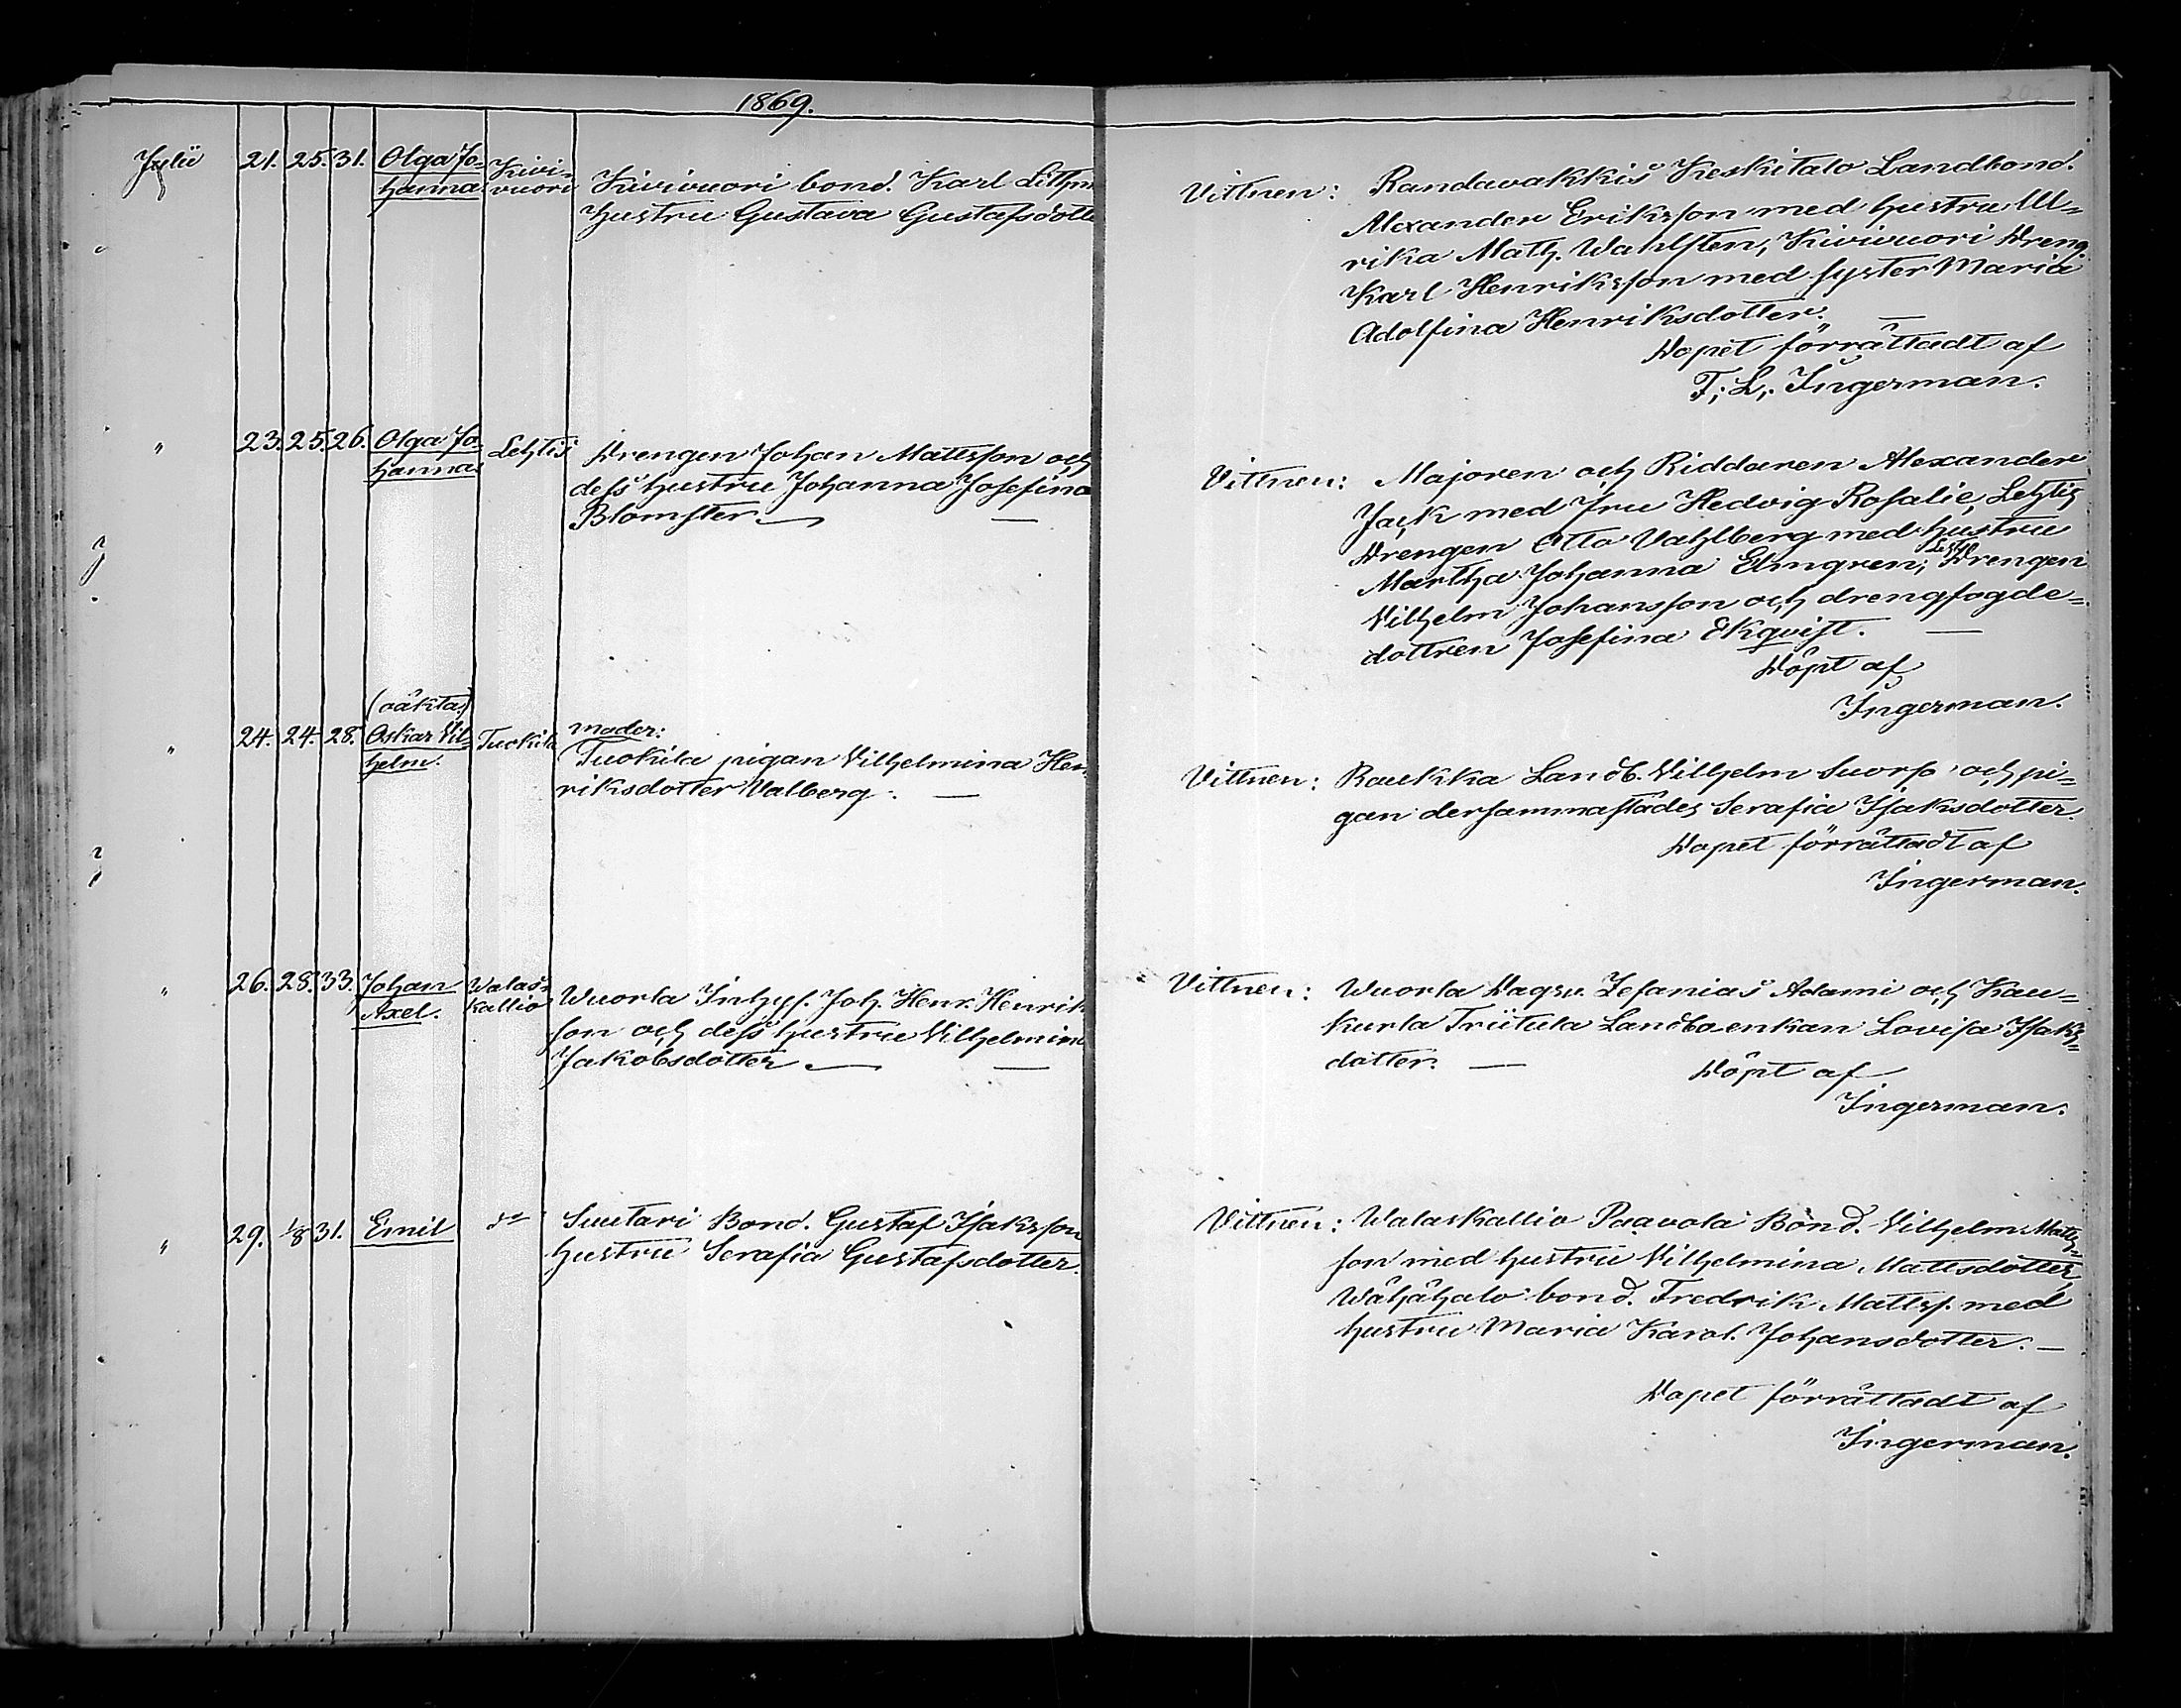 1869.
Julii 21. 25. 31. Olga Jo-
hanna Kivi-
vuori Kivivuori bond. Karl
hustru Gustava Gustafsdotte
Vittnen: Randavakkis Keskitalo Landbond.
Alexander Eriksson med hustru Ul=
rika Math. Wahlsten, Kivivuori Dreng
Karl Henriksson med syster Maria
Adolfina Henriksdotter. —
Dopet förrättadt af
F. L. Ingerman.
" 23. 25. 26. Olga Jo-
hanna Lehtis Drengen Johan Mattsson och
dess hustru Johanna Josefina
Blomster — —
Vittnen: Majoren och Riddaren Alexander
Jack med fru Hedvig Rosalie, Lehtis
Drengen Otto Vahlberg med hustru
Martha Johanna Elmgren; Leht. Drengen
Vilhelm Johansson och drengfogde=
dottren Josefina Ekqvist. —
Döpt af
Ingerman.
(oäkta)
" 24. 24. 28. Oskar Vil-
helm. Tuokila moder:
Tuokila pigan Vilhelmina Hen
riksdotter Valberg. —
Vittnen: Raukka Landb. Vilhelm Suorsa och pi=
gan dersammastädes Serafia Isaksdotter.
Dopet förrättadt af
Ingerman.
" 26. 28. 33. Johan
Axel. Walas-
kallio Wuorla Inhys. Joh. Henr. Henrik
son och dess hustru Vilhelmina
Jakobsdotter — —
Vittnen: Wuorla Dagsv. Zefanias Adami och Kau=
kurla Triitula Landboenkan Lovisa Isaks=
dotter. —
Döpt af
Ingerman.
" 29. 1/8 31. Emil do Suutari Bond. Gustaf Isaksson
hustru Serafia Gustafsdotter.
Vittnen: Walaskallio Paavola Bond. Vilhelm Matts=
son med hustru Vilhelmina Mattsdotter,
Wähähalo bond. Fredrik Mattss. med
hustru Maria Karol. Johansdotter. —
Dopet förrättadt af
Ingerman.